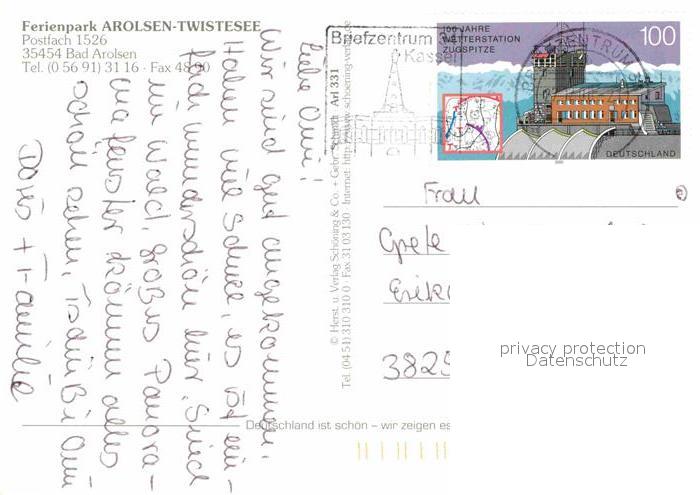 Ferienpark AROLSEN-TWISTESEE
Postfach 1526
35454 Bad Arolsen
Tel. (0 56 91) 31 16 · Fax 48 60
Liebe Omi!
Wir sind gut angekommen.
Haben viel Schnee, es ist ein-
fach wunderschön hier. Sind
im Wald, großes Panora-
ma fenster können alles
schön sehen,
Omi
+ Familie
© Herst. u. Verlag Schöning & Co. + Gebr. Schmidt Arl 331
Tel. (04 51) 310 310 0 · Fax 31 03 130 · Internet: http://www.schoening-verlag.de
Briefzentrum
Kassel
100 JAHRE
WETTERSTATION
ZUGSPITZE
100
BRIEFZENTRUM
DEUTSCHLAND
Frau
Grete
3825
privacy protection
Datenschutz
Deutschland ist schön – wir zeigen es